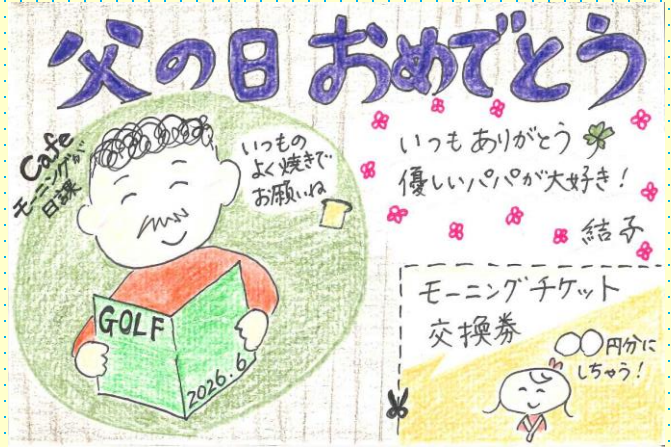 父の日 おめでとう
Cafe
モーニングが
日課
いつもの
よく焼きで
お願いね
GOLF
2026.6
いつもありがとう
優しいパパが大好き！
結子
モーニングチケット
交換券
○○円分に
しちゃう！